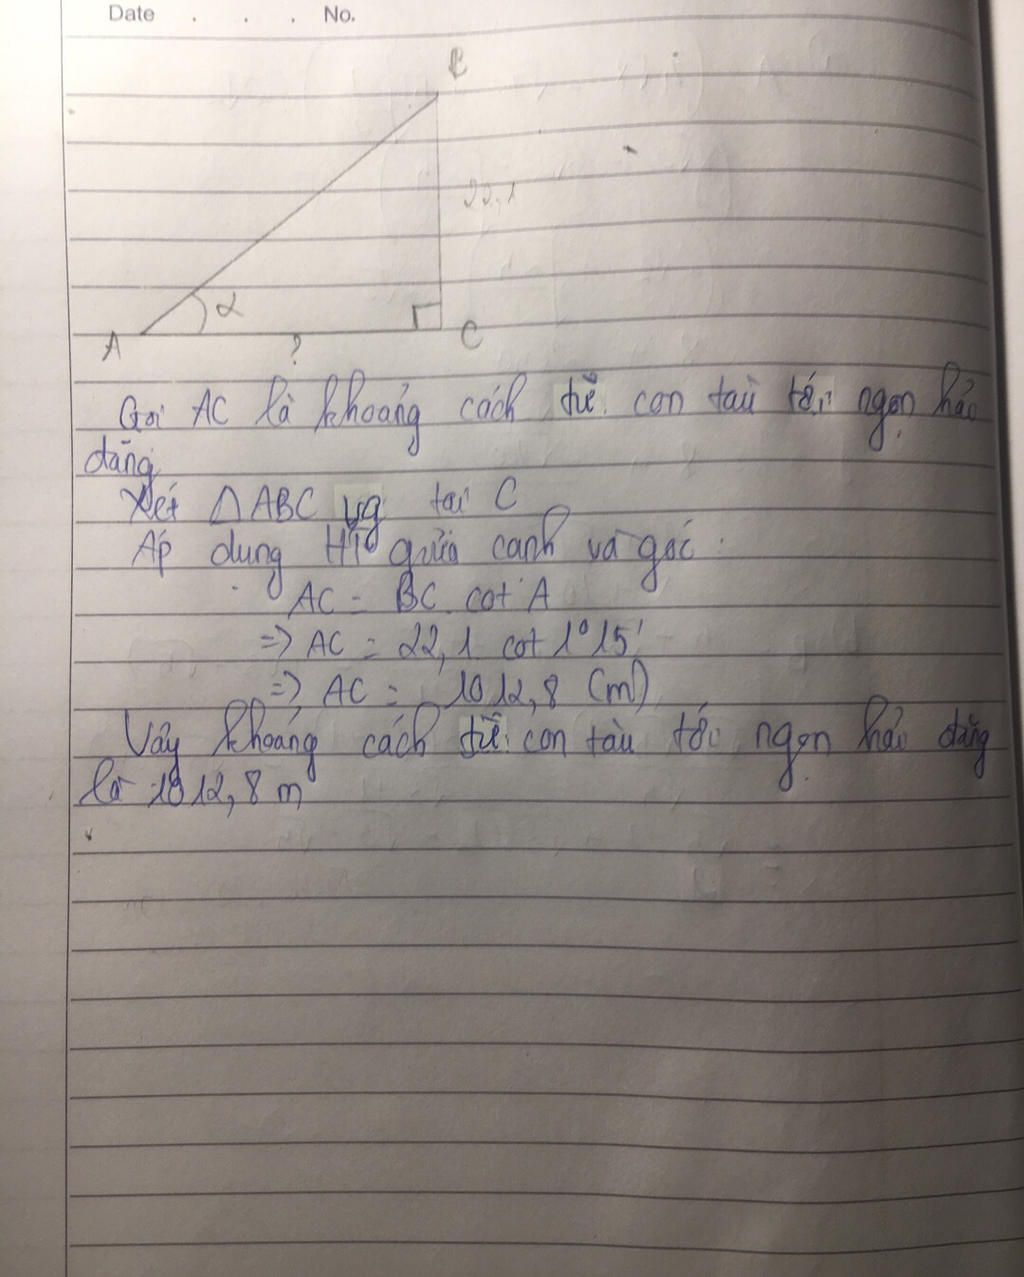 Date . . . No.
B
22,1
α
A ? C
Gọi AC là khoảng cách từ con tàu tới ngọn hải
đăng
Xét △ABC vg tại C
Áp dụng HT giữa cạnh và góc:
AC = BC. cot A
=> AC = 22,1 cot 1°15'
=> AC = 1012,8 (m)
Vậy khoảng cách từ con tàu tới ngọn hải đăng
là 1012,8 m